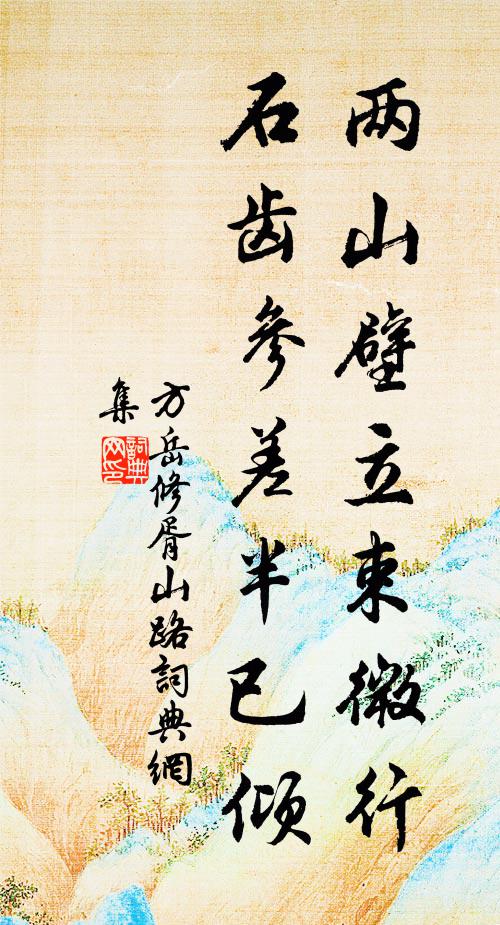 两山壁立束微行
石齿參差半已倾
方岳修胥山路詞典網
集
詞典
网印